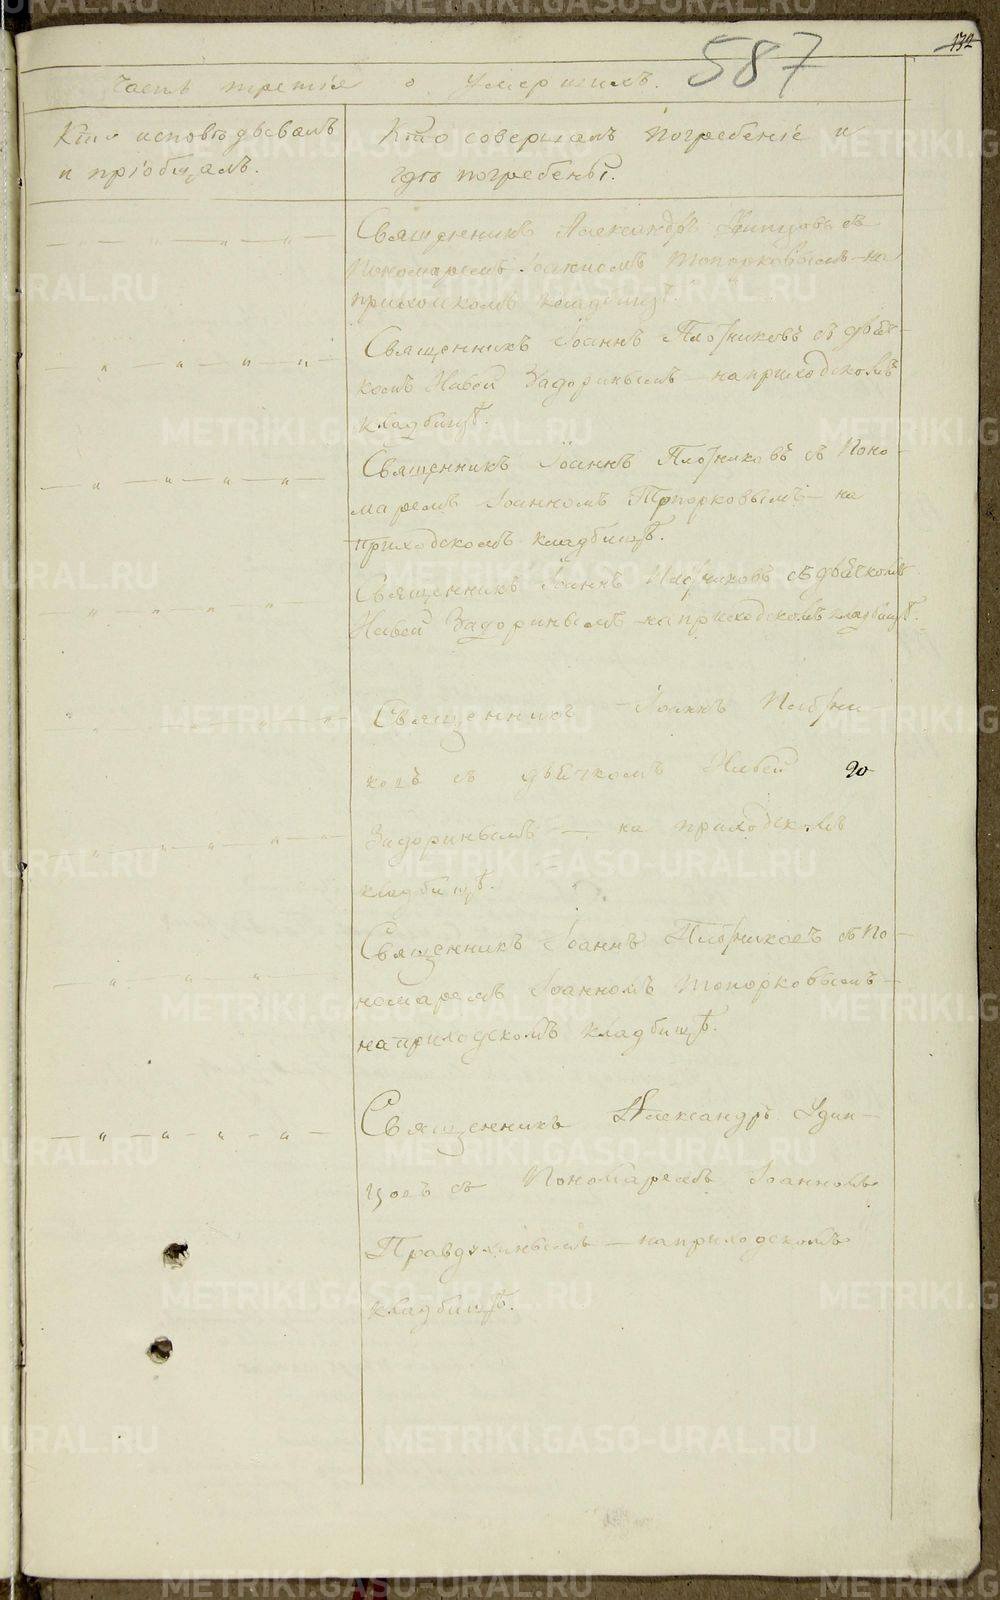 132
587
Часть третія о умершихъ.
Кто исповѣдывалъ
и пріобщалъ.
Кто совершалъ погребеніе и
гдѣ погребены.
Священникъ Александръ съ
Пономаремъ Іоанномъ Топорковымъ – на
приходскомъ кладбищѣ.
Священникъ Іоаннъ Плотниковъ съ дьяч-
комъ Задоринымъ – на приходскомъ
кладбищѣ.
Священникъ Іоаннъ Плотниковъ съ Поно-
маремъ Іоанномъ Топорковымъ – на
приходскомъ кладбищѣ.
Священникъ Іоаннъ Плотниковъ съ дьячкомъ
Задоринымъ – на приходскомъ кладбищѣ.
Священникъ Іоаннъ Плотни-
ковъ съ дьячкомъ
Задоринымъ – на приходскомъ
кладбищѣ.
Священникъ Іоаннъ Плотниковъ съ По-
номаремъ Іоанномъ Топорковымъ –
на приходскомъ кладбищѣ.
Священникъ Александръ Удин-
цовъ съ Пономаремъ Іоанномъ
Правдухинымъ – на приходскомъ
кладбищѣ.
METRIKI.GASO-URAL.RU